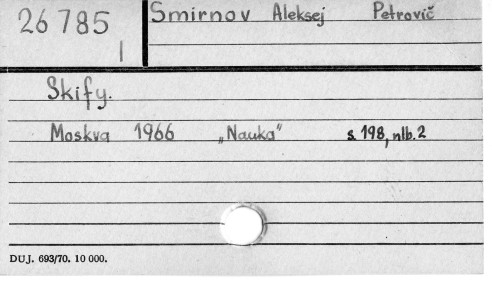 26 785
I
Smirnov Aleksej Petrovič
Skify.
Moskva 1966 „Nauka" s. 198, nlb. 2
DUJ. 693/70. 10 000.